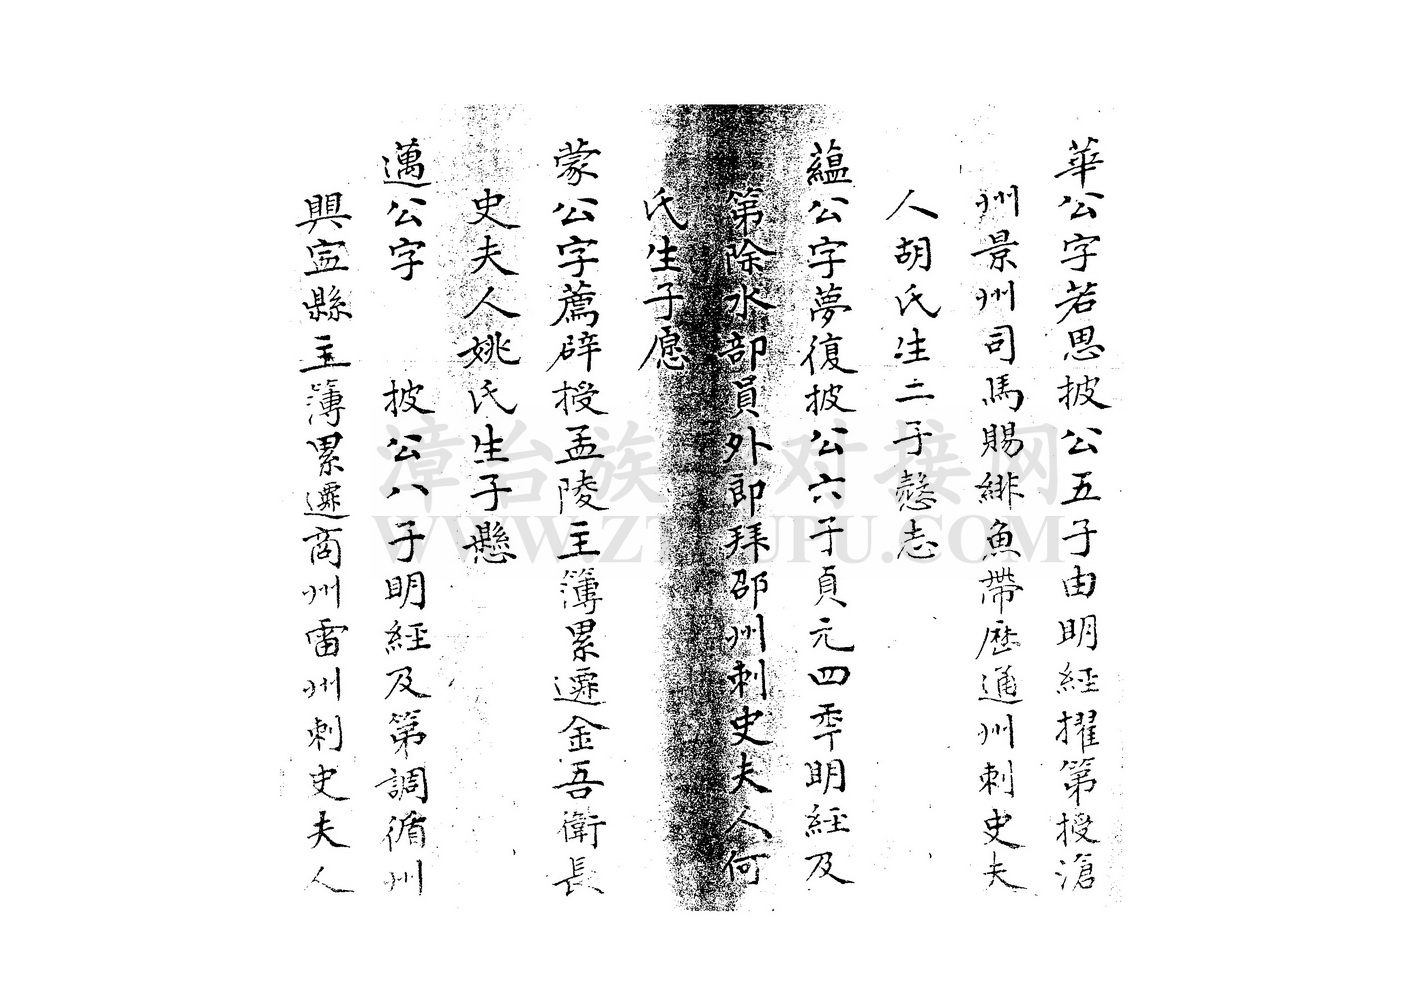 華公字若思披公五子由明經擢第授滄
州景州司馬賜緋魚帶歷通州刺史夫
人胡氏生二子慤志
蘊公字夢復披公六子貞元四年明經及
第除水部員外郎拜邵州刺史夫人何
氏生子愿
蒙公字薦辟授孟陵主簿累遷金吾衛長
史夫人姚氏生子懸
邁公字 披公八子明經及第調循州
興寍縣主簿累遷商州雷州刺史夫人
漳台族 对接网
WWW.ZT PU.COM